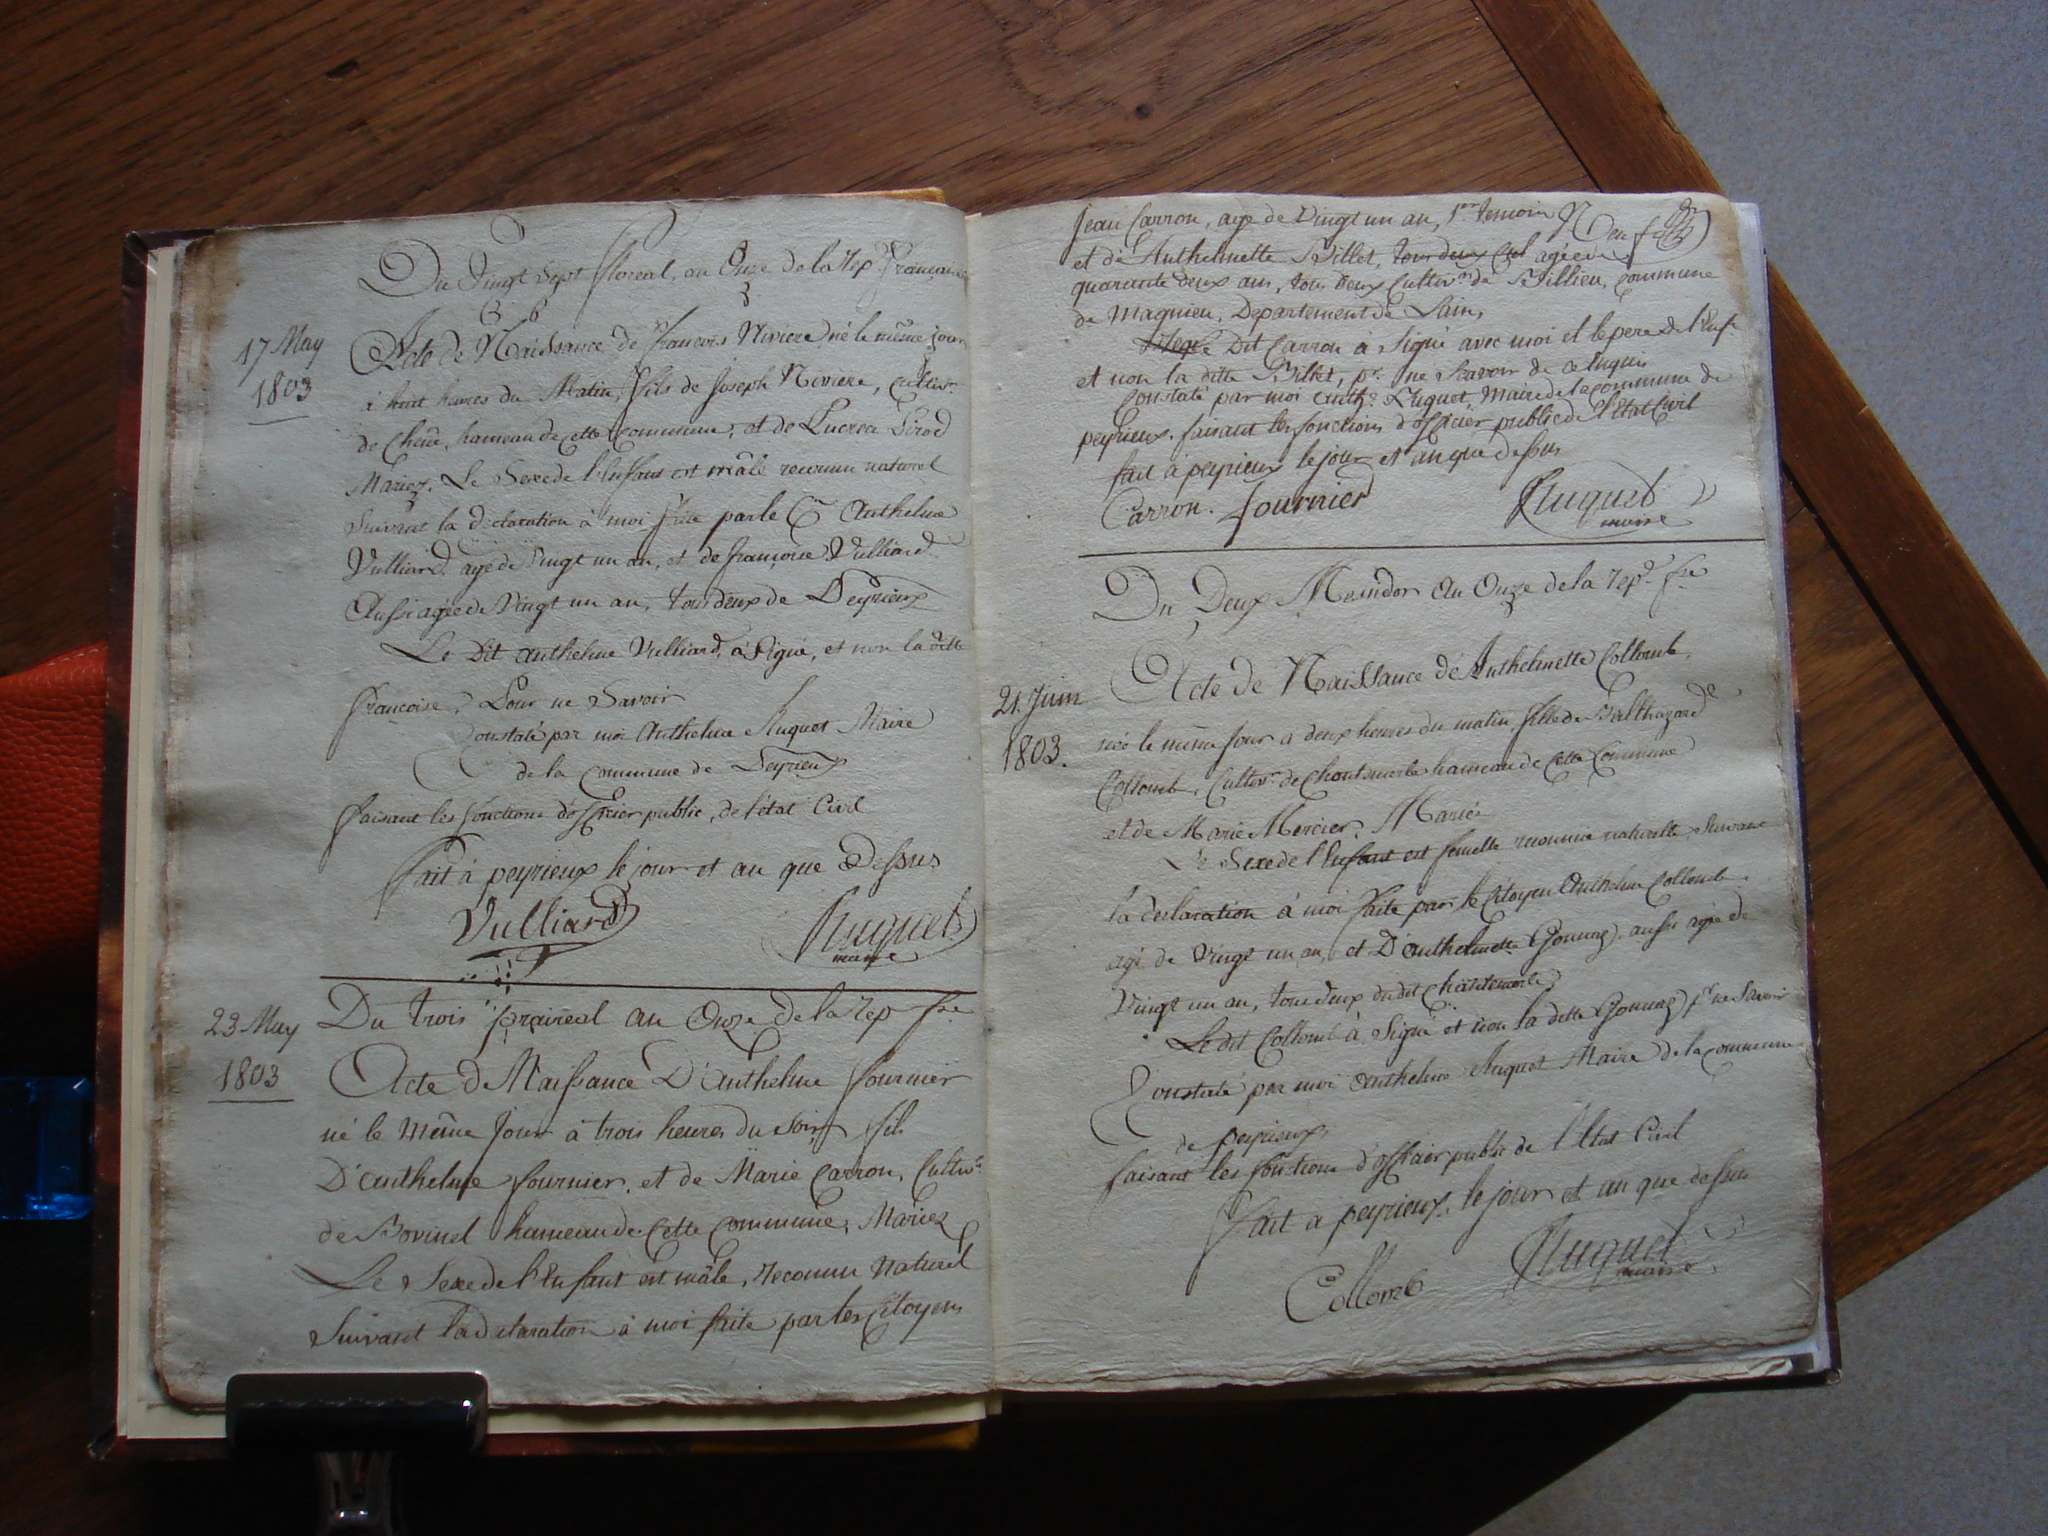 Du Vingt Sept floreal, an Onze de la rep. française
17 May
1803
Acte de Naissance de francois Riviere né le même jour
à huit heures du Matin, fils de Joseph Riviere, cultivr.
de Chene, hameau de cette commune, et de Lucrece Girod
Mariez. Le Sexe de l'Enfant est mâle reconnu naturel
Suivant la déclaration à moi faite par le Cen Anthelme
Vulliard, agé de Vingt un an, et de françoise Vulliard
Aussi agée de Vingt un an, tous deux de Peyrieux
Le Dit anthelme Vulliard, à Signé, et non la ditte
françoise, Pour ne Savoir
Constaté par moi Anthelme Huguet Maire
de la commune de Peyrieux
faisant les fonctions d'officier public, de l'état Civil
fait à peyrieux le jour et an que Dessus
Vulliard Huguet
maire
23 May
1803
Du trois prairéal an Onze de la rep fse
Acte de Naissance D'anthelme fournier
né le même Jour à trois heures du soir fils
D'anthelme fournier, et de Marie Carron, Cultivrs
de Bovinel hameau de Cette commune, Mariez
Le Sexe de l'Enfant est mâle, reconnu Naturel
Suivant la déclaration à moi faite par les Citoyens
Jean Carron, age de Vingt un an, 1er temoin
et de Anthelmette Billet, agée de
quarante deux ans, tous deux Cultivrs de Billieu, commune
de Magnieu, Departement de Lain,
Dit Carron à Signé avec moi et le pere de l'Enft
et non la ditte Billet, pr. ne Savoir de ce Enquis
Constaté par moi anthe Huguet, Maire de la commune de
peyrieux, faisant les fonctions d'officier public de l'Etat Civil
fait à peyrieux le jour et an que dessus
Carron. fournier Huguet
maire
Du Deux Messidor an Onze de la rep. fse
21. Juin
1803.
Acte de Naissance de Anthelmette Collomb,
née le même Jour a deux heures du matin, fille de Balthazard
Collomb, Cultivr de Chantemerle hameau de Cette Commune
et de Marie Mercier, Mariés
Le Sexe de l'Enfant est femelle reconnue naturelle, Suivant
la declaration à moi faite par le Citoyen Anthelme Collomb
agé de Vingt un an, et D'anthelmette Gonnag, aussi agée de
Vingt un an, tous deux dudit Chantemerle
Le dit Collomb à Signé et non la ditte Gonnag pr ne Savoir
Constaté par moi anthelme Huguet Maire de la commune
de peyrieux,
faisant les fonctions d'officier public de l'Etat Civil
fait a peyrieux, le jour et an que dessus
Collomb Huguet
maire